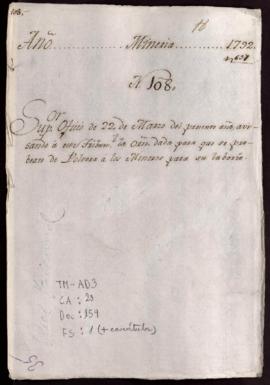 108.
16
Año Mineria 1792.
N 108.
Sor
Sup. Oficio de 22 de Marzo del presente año, avi-
sando a este Tribunl. la orn. dada para que se pro-
bean de Polvora a los Mineros para su laborio.
TM-AD3
CA: 23
Doc: 154
FS: 1 (+ carátula)